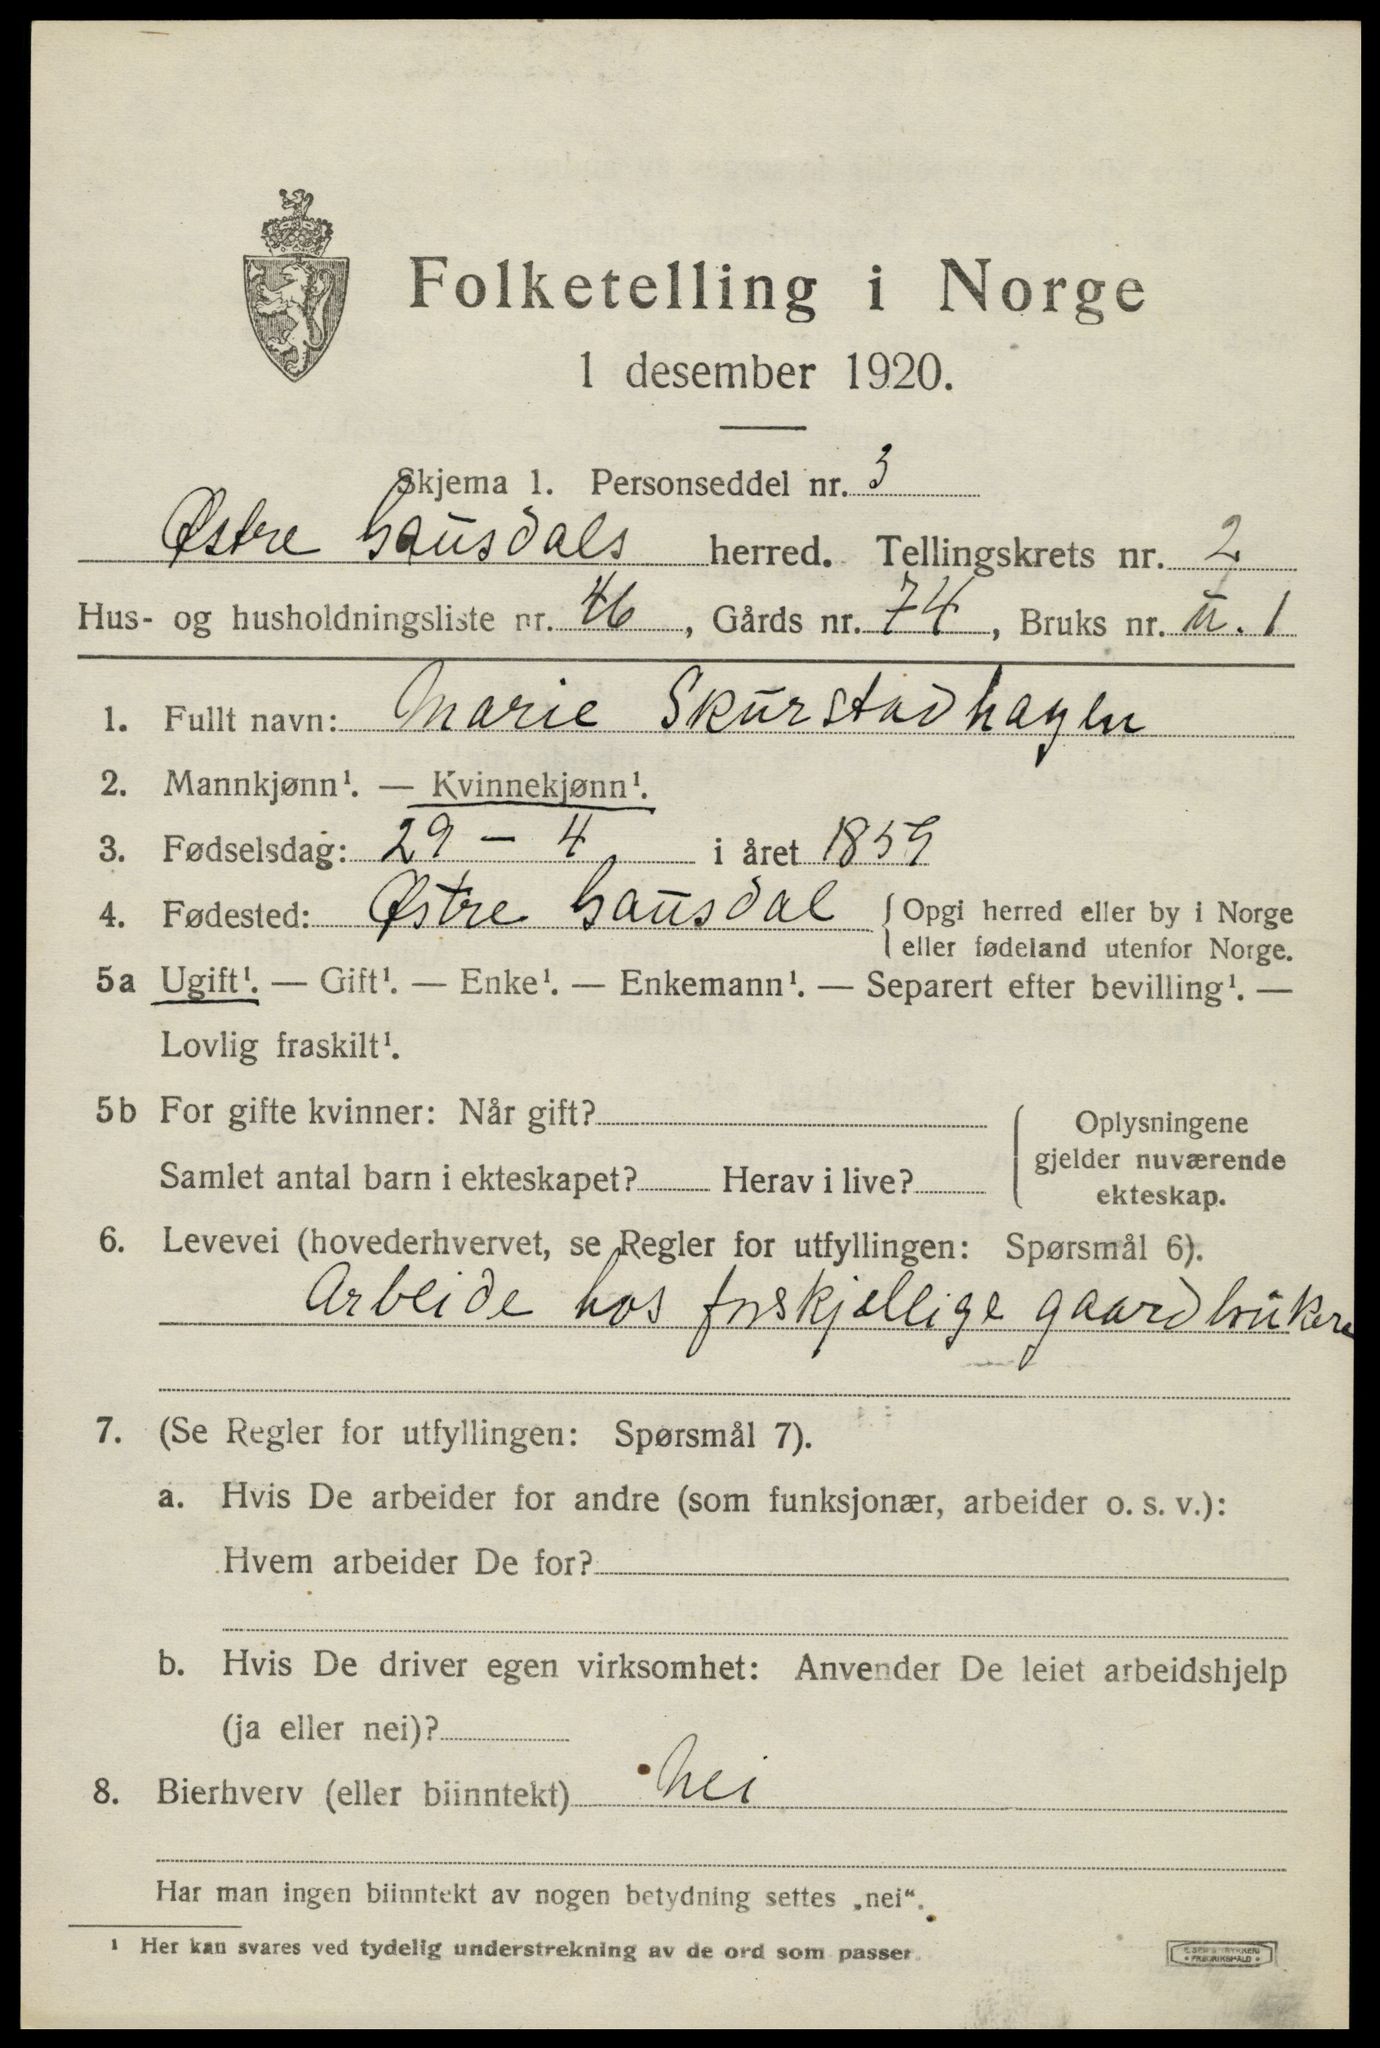 Folketelling i Norge
1 desember 1920.
Skjema 1. Personseddel nr. 3
Østre Gausdals herred. Tellingskrets nr. 2
Hus- og husholdningsliste nr. 46, Gårds nr. 74, Bruks nr. u. 1
1. Fullt navn: Marie Skurstadhagen
2. Mannkjønn¹. — Kvinnekjønn¹.
3. Fødselsdag: 29 - 4 i året 1859
4. Fødested: Østre Gausdal { Opgi herred eller by i Norge
eller fødeland utenfor Norge.
5a Ugift¹. — Gift¹. — Enke¹. — Enkemann¹. — Separert efter bevilling¹. —
Lovlig fraskilt¹.
5b For gifte kvinner: Når gift?
Samlet antal barn i ekteskapet? Herav i live?
Oplysningene
gjelder nuværende
ekteskap.
6. Levevei (hovederhvervet, se Regler for utfyllingen: Spørsmål 6).
Arbeide hos forskjællige gaardbrukere
7. (Se Regler for utfyllingen: Spørsmål 7).
a. Hvis De arbeider for andre (som funksjonær, arbeider o. s. v.):
Hvem arbeider De for?
b. Hvis De driver egen virksomhet: Anvender De leiet arbeidshjelp
(ja eller nei)?
8. Bierhverv (eller biinntekt) Nei
Har man ingen biinntekt av nogen betydning settes „nei“.
¹ Her kan svares ved tydelig understrekning av de ord som passer.
FREDRIKSHALD